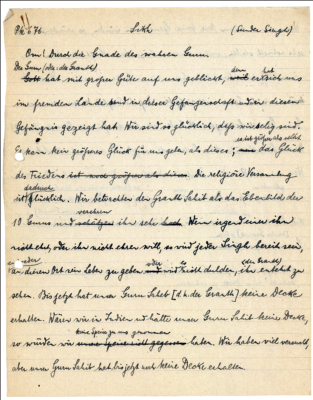 Pk 676. Sikh (Sundar Singh)
Om! Durch die Gnade des wahren Guru.
Der Guru (oder: der Granth) denn hat
Gott hat mit großer Güte auf uns geblickt, weil er sich uns
im fremden Lande und in dieser Gefangenschaft und in diesem
Gefängnis gezeigt hat. Wir sind so glücklich, daß wir selig sind.
nicht größer als selbst
Es kann kein größeres Glück für uns geben, als dieses; das Glück
des Friedens ist noch größer als dieses. Die religiöse Versammlung
dadurch
ist glücklich. Wir betrachten den Granth Sahib als das Ebenbild der
verehren
10 Gurus und schätzen ihn sehr hoch. Wenn irgend einer ihn
nicht ehrt, oder ihn nicht ehren will, so wird jeder Singh bereit sein,
an diesem Ort sein Leben zu geben und nicht dulden, ihn entehrt zu
sehen. Bis jetzt hat unser Guru Saheb [d.h. der Granth] keine Decke
erhalten. Wären wir in Indien und hätte unser Guru Sahib keine Decke,
keine Speise zu uns genommen
so würden wir unsere Speise nicht gegessen haben. Wir haben viel verlangt,
aber unser Guru Sahib hat bis jetzt noch keine Decke erhalten.